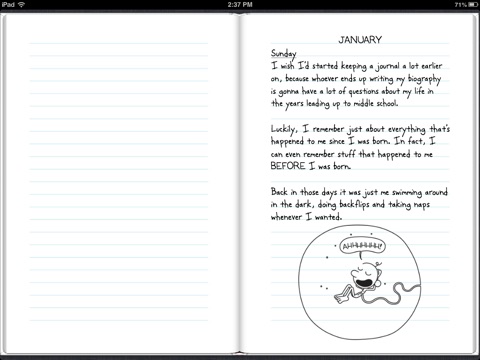 iPad
2:37 PM
71%
JANUARY
Sunday
I wish I'd started keeping a journal a lot earlier
on, because whoever ends up writing my biography
is gonna have a lot of questions about my life in
the years leading up to middle school.
Luckily, I remember just about everything that's
happened to me since I was born. In fact, I
can even remember stuff that happened to me
BEFORE I was born.
Back in those days it was just me swimming around
in the dark, doing backflips and taking naps
whenever I wanted.